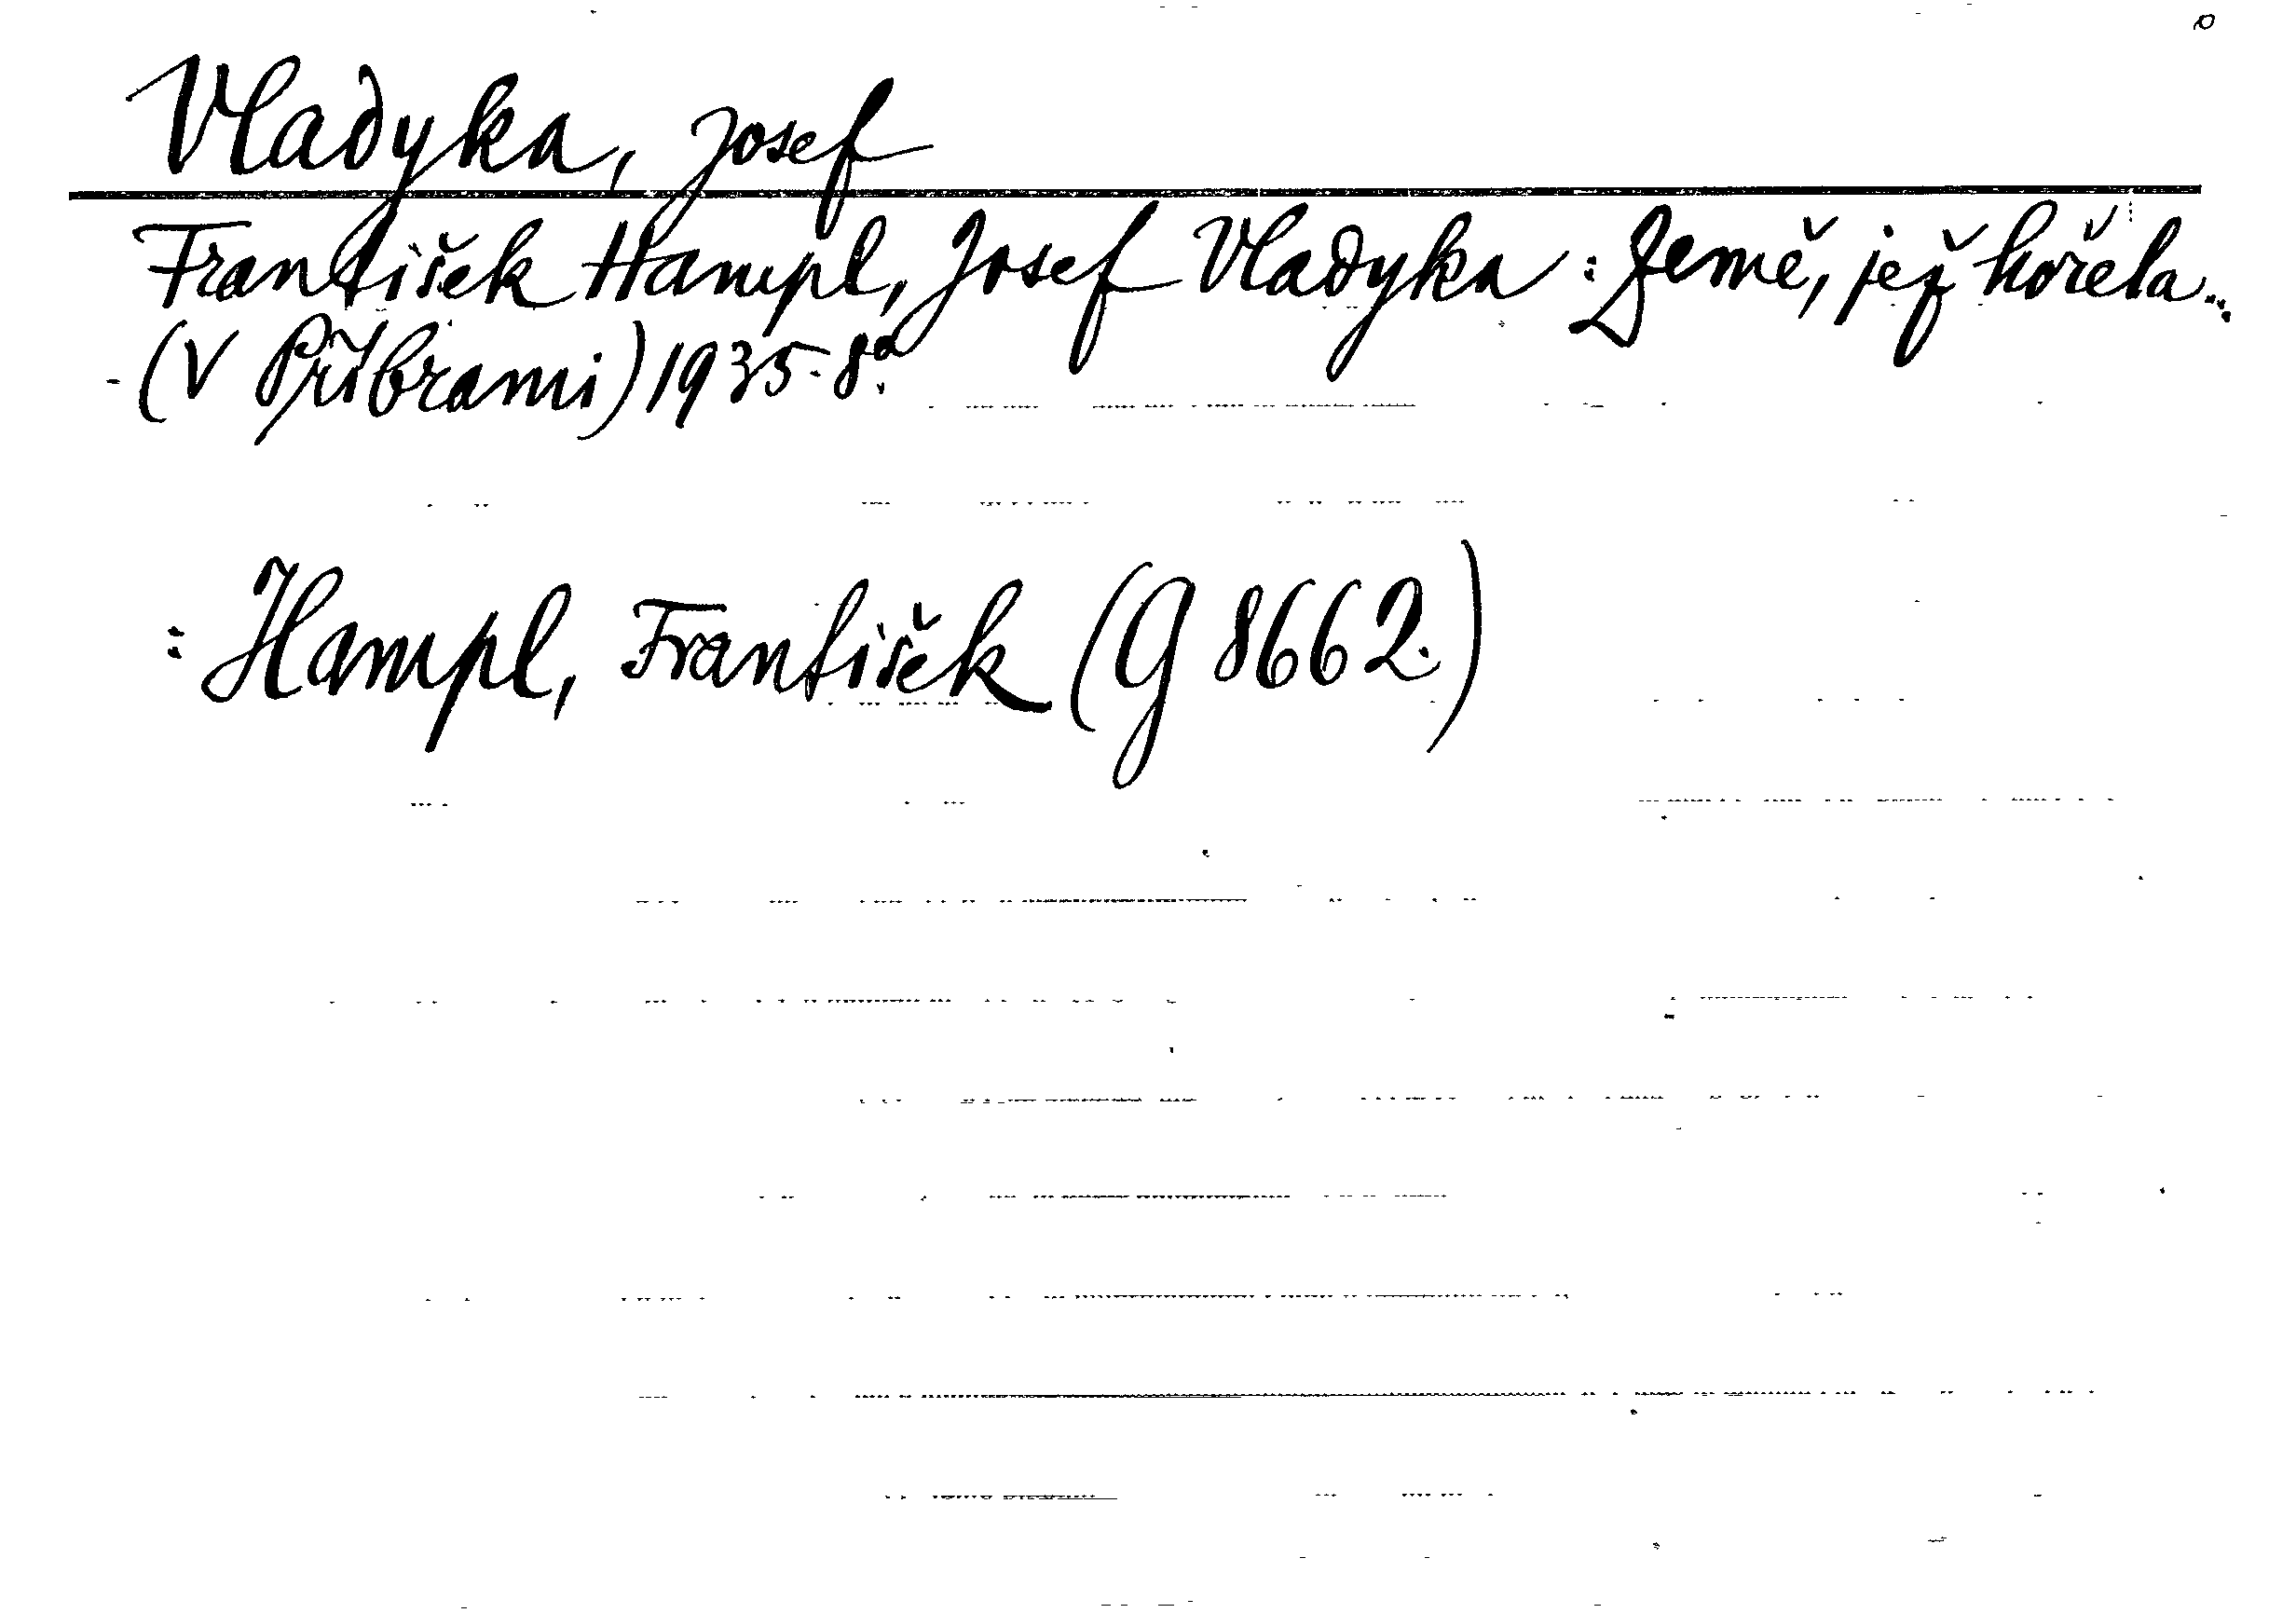 Vladyka, Josef
František Hampl, Josef Vladyka: Země, jež hořela...
(V Příbrami) 1935. 8°.
: Hampl, František (G 8662.)